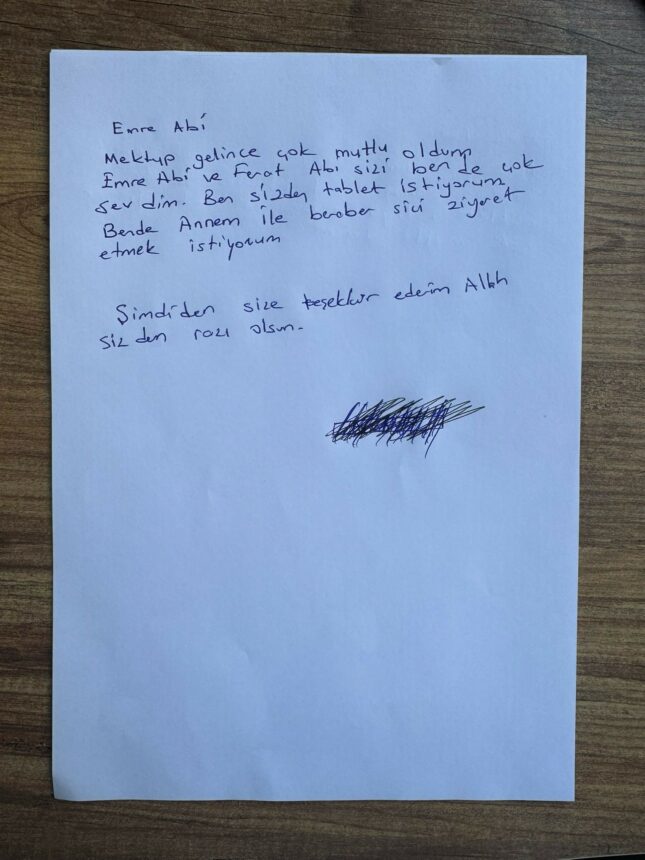 Emre Abi
Mektup gelince çok mutlu oldum
Emre Abi ve Ferat Abi sizi ben de çok
sev dim. Ben sizden tablet istiyorum
Bende Annem ile beraber sizi ziyaret
etmek istiyorum
Şimdi'den size teşekkür ederim Allah
siz den razı olsun.